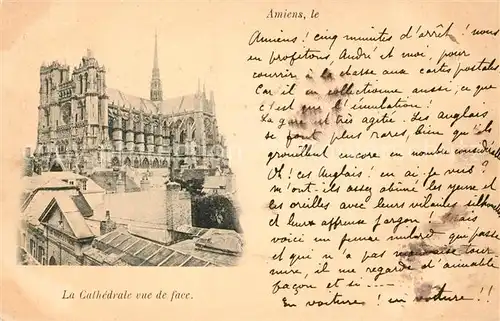 Amiens, le
Amiens ! cinq minutes d'arrêt ! nous
en profitons, André et moi, pour
courrir à la chasse aux cartes postales
Car il en collectionne aussi, ce que
c'est que l'émulation !
La gare est très agitée. Les anglais
se font plus rares, bien qu'ils
grouillent encore en nombre considérable
Oh ! ces Anglais ! en ai-je vus ?
m'ont-ils assez abîmé les yeux et
les oreilles avec leurs vilaines silhouettes
et leur affreux jargon ! Mais
voici un jeune qui passe
et qui n'a pas mauvaise tour
nure, il me regarde d'aimable
façon et si ----
En voiture ! en voiture !!
La Cathédrale vue de face.